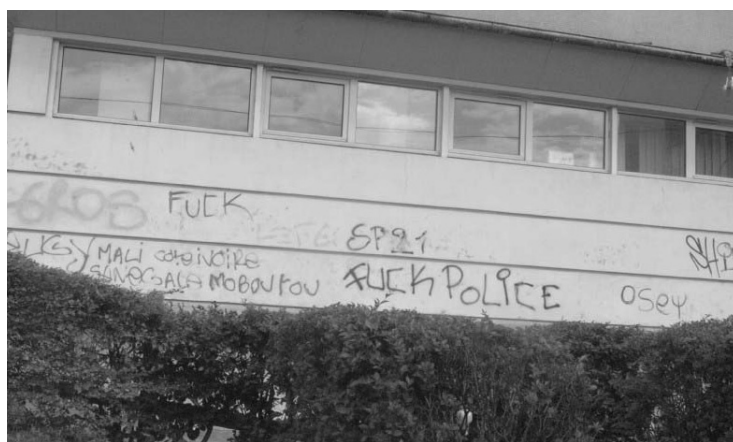 GROS
FUCK
SP21
MALI coteivoire
SENEGALA MOBOUTOU
FUCK POLICE
OSEY